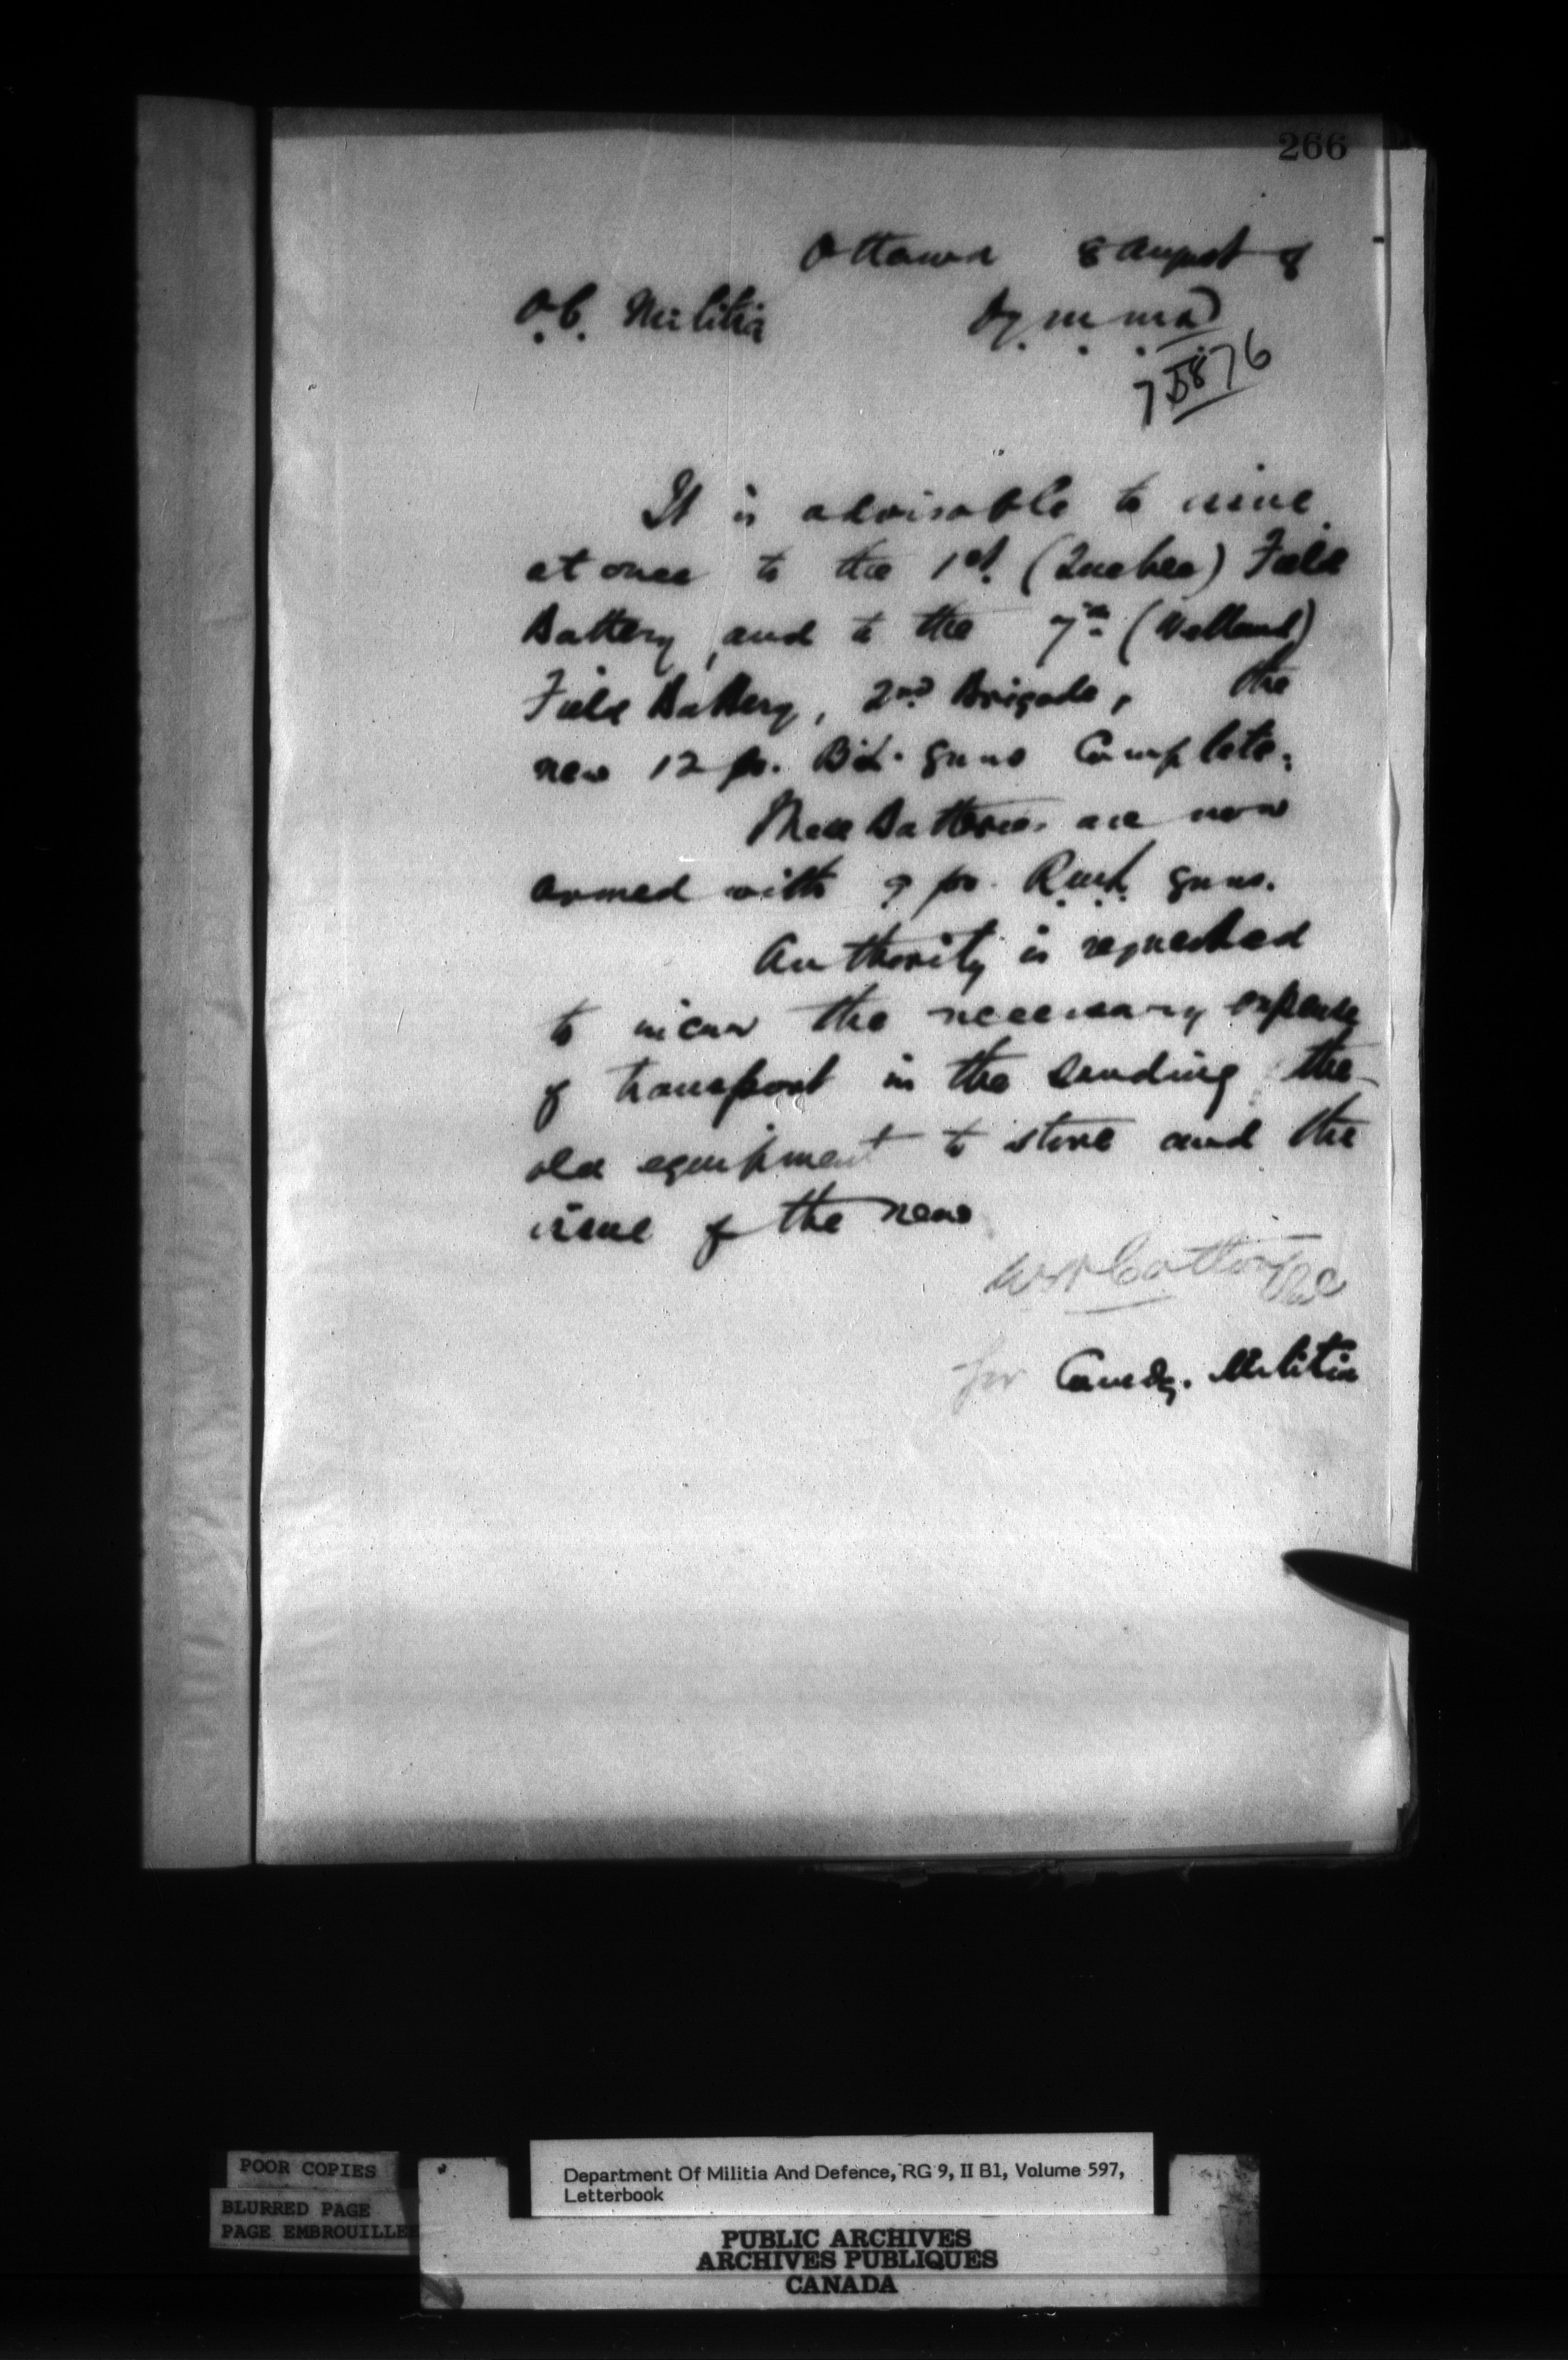 266
Ottawa 8 August 8
O.C. Militia Dy. m. m a D
7 5876
It is advisable to issue
at once to the 1st. (Quebec) Field
Battery, and to the 7th (Welland)
Field Battery, 2nd Brigade, the
new 12 pr. B.L. guns Complete.
These Batteries are now
armed with 9 pr. R.M.L. guns.
Authority is requested
to incur the necessary expense
of transport in the sending the
old equipment to store and the
issue of the new
W H Cotton
for Comdg. Militia
POOR COPIES
BLURRED PAGE
PAGE EMBROUILLEE
Department Of Militia And Defence, RG 9, II B1, Volume 597,
Letterbook
PUBLIC ARCHIVES
ARCHIVES PUBLIQUES
CANADA